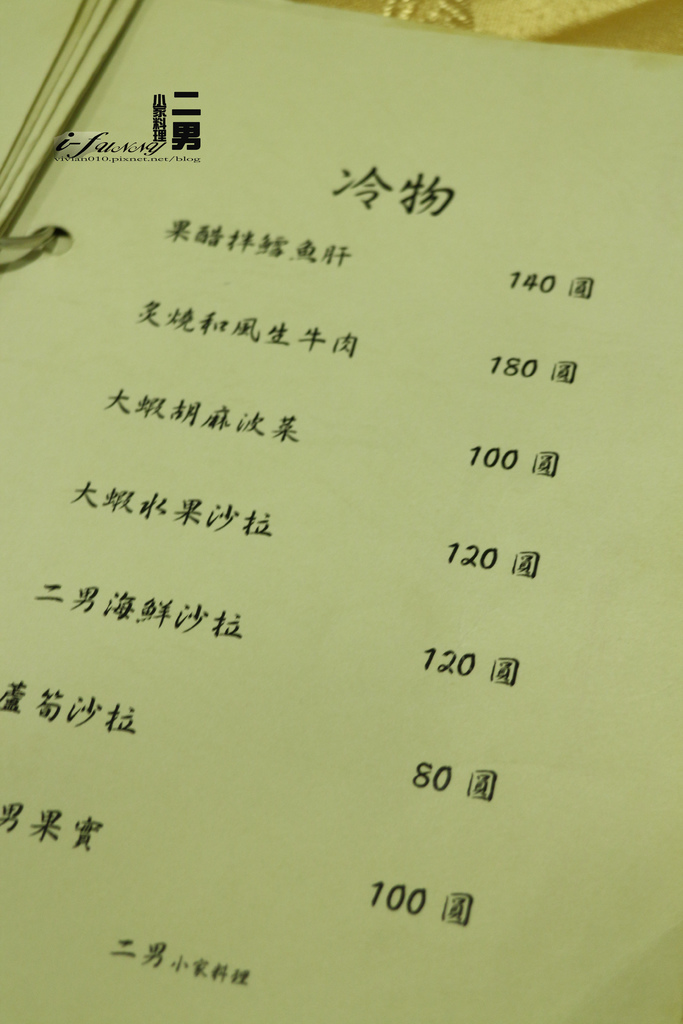 二男
小家料理
i-Funny
vivian010.pixnet.net/blog
冷物
果醋拌鱈魚肝 140 圓
炙燒和風生牛肉 180 圓
大蝦胡麻波菜 100 圓
大蝦水果沙拉 120 圓
二男海鮮沙拉 120 圓
蘆筍沙拉 80 圓
男果實 100 圓
二男小家料理